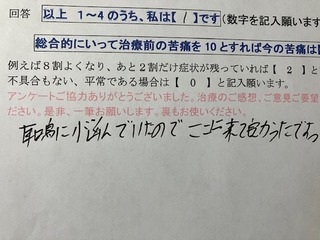 回答 以上 1～4のうち、私は【 1 】です (数字を記入願います
総合的にいって治療前の苦痛を10とすれば今の苦痛は【
例えば8割よくなり、あと2割だけ症状が残っていれば【 2 】と
不具合もない、平常である場合は【 0 】と記入願います。
アンケートご協力ありがとうございました。治療のご感想、ご意見ご要望
ださい。是非、一筆お願いします。裏もお使いください。
耳鳴に悩んでいたので ここに来て良かったです